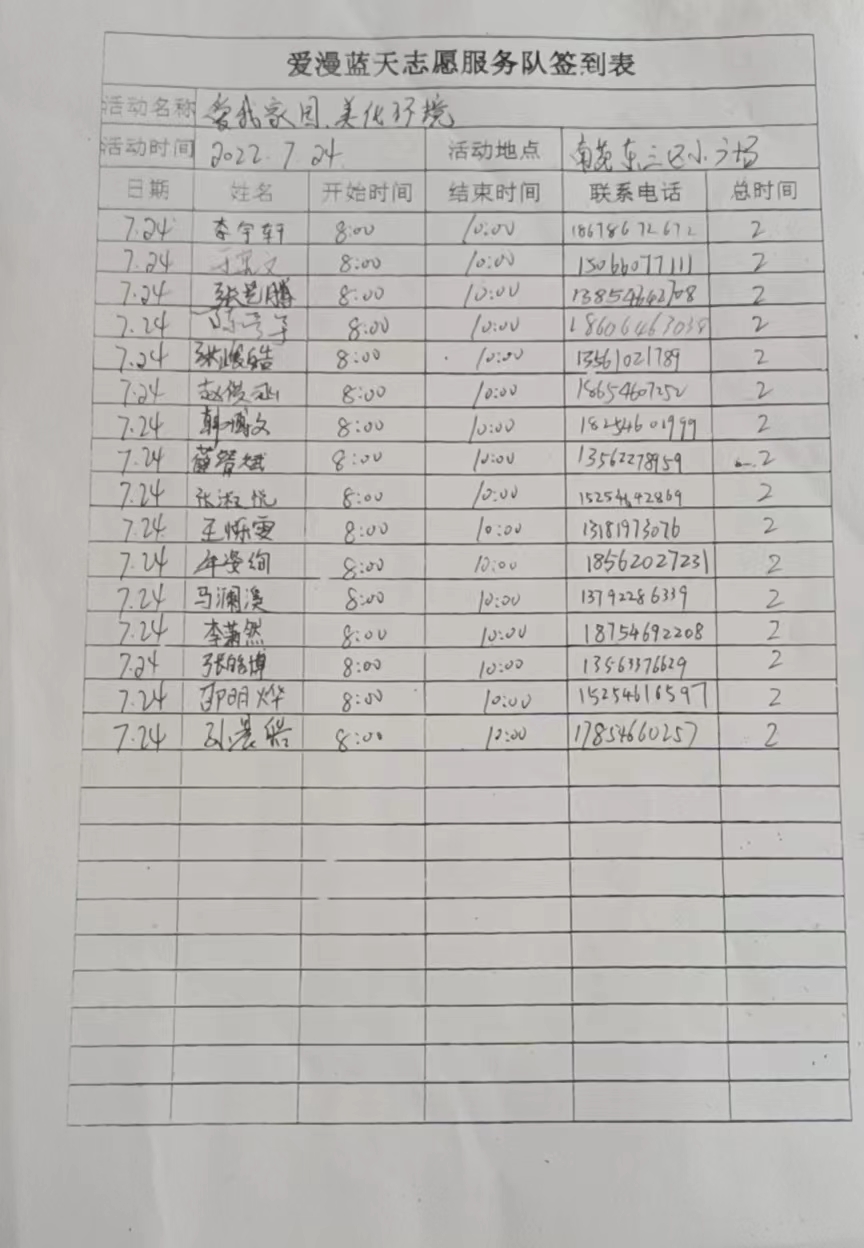 爱漫蓝天志愿服务队签到表
活动名称 爱我家园、美化环境
活动时间 2022.7.24. 活动地点 南苑东三区小广场
日期 姓名 开始时间 结束时间 联系电话 总时间
7.24 李宇轩 8:00 10:00 18678672672 2
7.24 8:00 10:00 15066077111 2
7.24 8:00 10:00 2
7.24 8:00 10:00 2
7.24 8:00 10:00 13561021789 2
7.24 赵俊 8:00 10:00 18654607252 2
7.24 韩博文 8:00 10:00 18254601999 2
7.24 8:00 10:00 13562278959 2
7.24 张淑悦 8:00 10:00 15254692869 2
7.24 王烁雯 8:00 10:00 13181973076 2
7.24 牟姿绚 8:00 10:00 18562027231 2
7.24 马澜溪 8:00 10:00 13792286339 2
7.24 李萧然 8:00 10:00 18754692208 2
7.24 张皓博 8:00 10:00 13563376629 2
7.24 邵明烨 8:00 10:00 15254616597 2
7.24 孙晨皓 8:00 10:00 17854660257 2